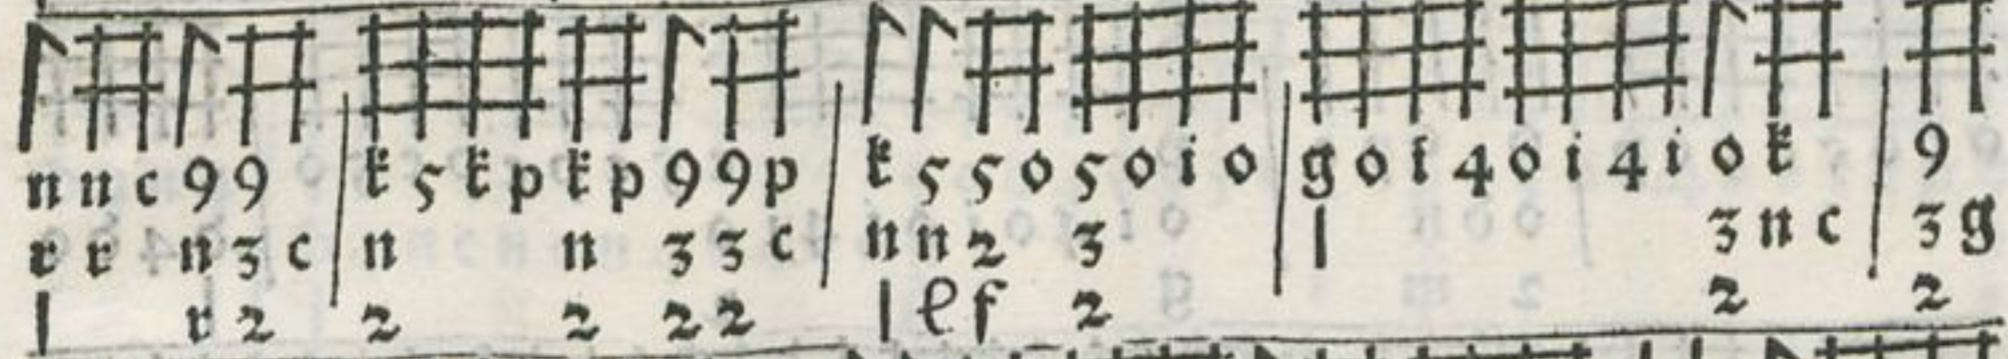 n n c 9 9 | k 5 k p k p 9 9 p | k 5 5 o 5 o i o | g o f 4 o i 4 i o k | 9
r r n 3 c | n n 3 3 c | n n 2 3 | l 3 n c | 3 g
l r 2 2 2 2 2 l e f 2 2 2